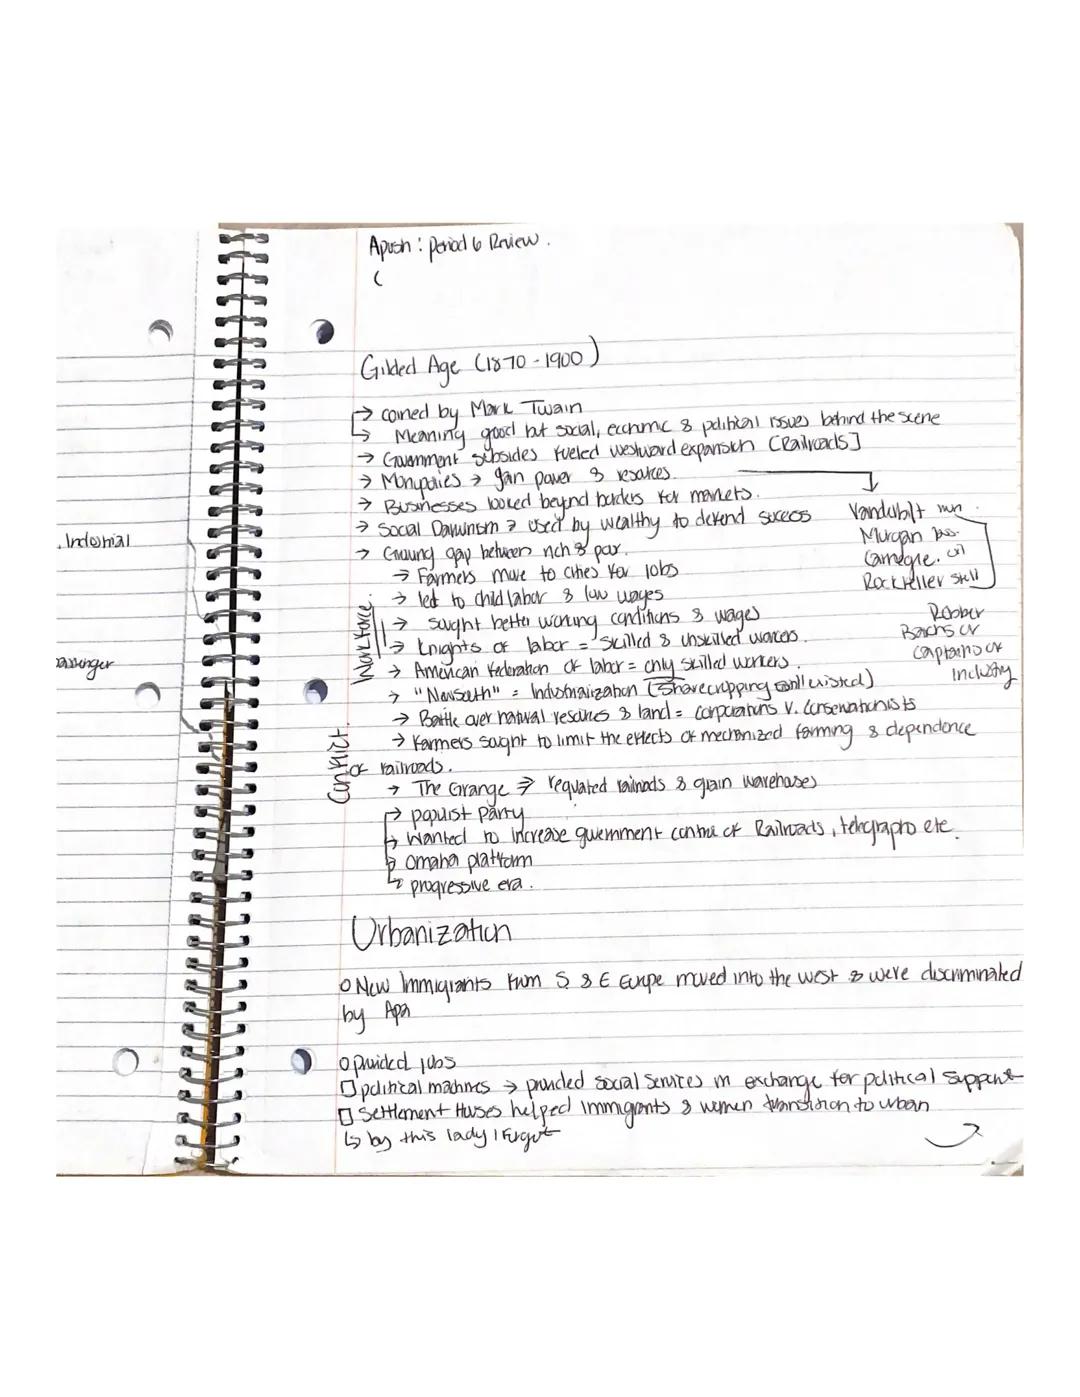 Apush : Period 6 Review .
(
Gilded Age (1870 - 1900)
→ coined by Mark Twain
↳ Meaning good but social, economic & political issues behind the scene
→ Government subsides fueled westward expansion [Railroads]
→ Monopolies → gain power & resources.
→ Businesses looked beyond borders for markets.
→ Social Darwinism → used by wealthy to defend success
→ Growing gap between rich & poor.
→ Farmers move to cities for jobs
→ led to child labor & low wages
→ sought better working conditions & wages
→ Knights of labor = skilled & unskilled workers.
→ American federation of labor = only skilled workers.
→ "New South" = Industrialization (Sharecropping still existed)
→ Battle over natural resources & land = corporations v. conservationists
→ Farmers sought to limit the effects of mechanized farming & dependence
of railroads.
→ The Grange → regulated railroads & grain warehouses
→ populist party
↳ wanted to increase government control of Railroads, telegraphs etc.
↳ omaha platform
↳ progressive era.
Vanderbilt
Morgan
Carnegie. oil
Rockfeller
Robber
Barons or
captains of
Industry
Workforce.
Conflict.
. Industrial
passinger
Urbanization
o New Immigrants from S & E Europe moved into the west & were discriminated
by Apa
o provided jobs
□ political machines → provided social services in exchange for political support
□ Settlement Houses helped immigrants & women transition to urban
↳ by this lady I forgot